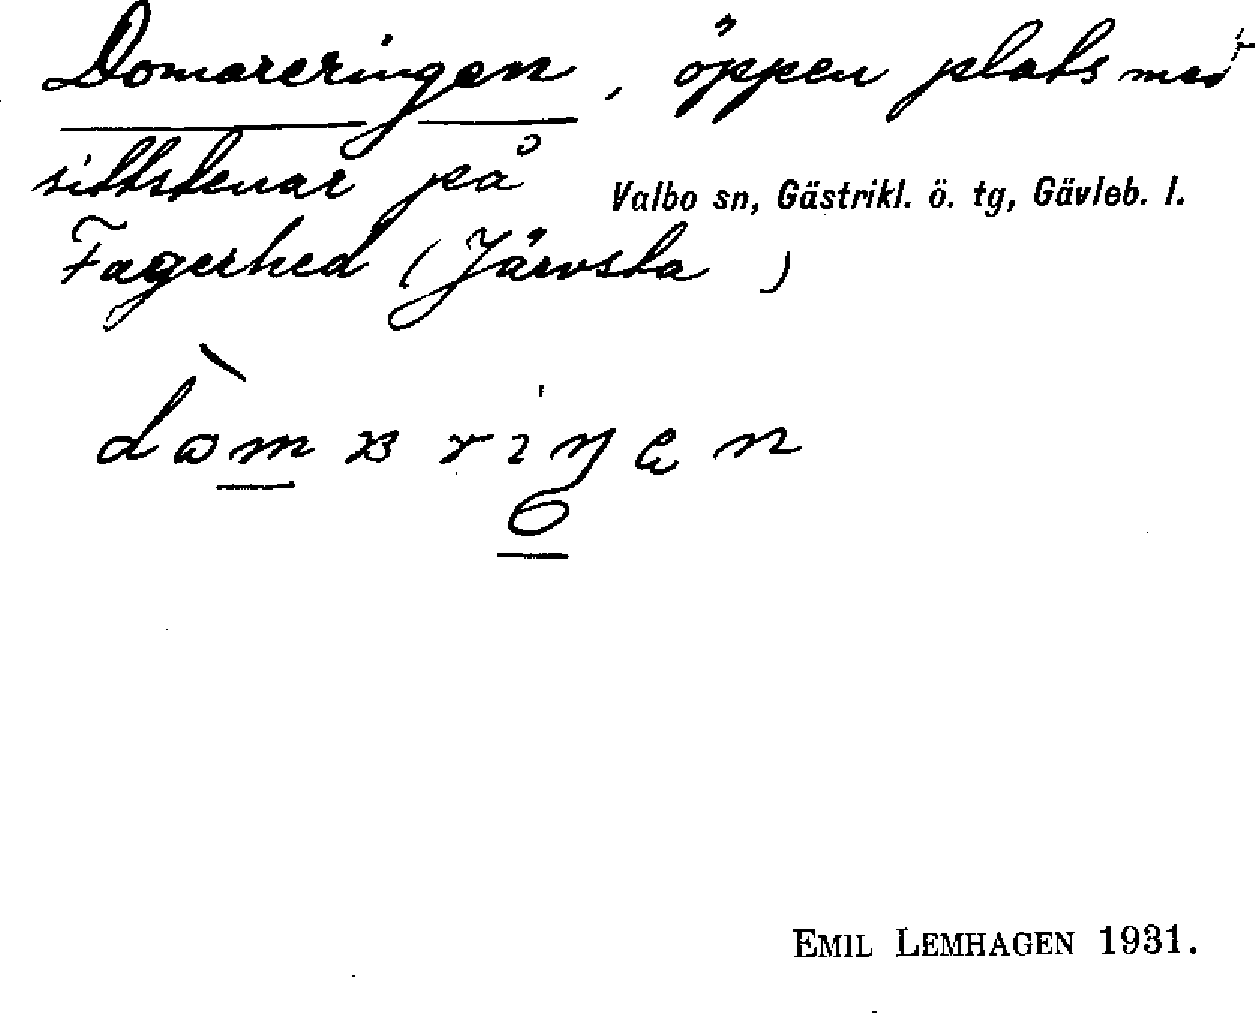 Domareringen, öppen plats med
sittstenar på
Valbo sn, Gästrikl. ö. tg, Gävleb. l.
Fagerhed (Järvsta)
EMIL LEMHAGEN 1931.